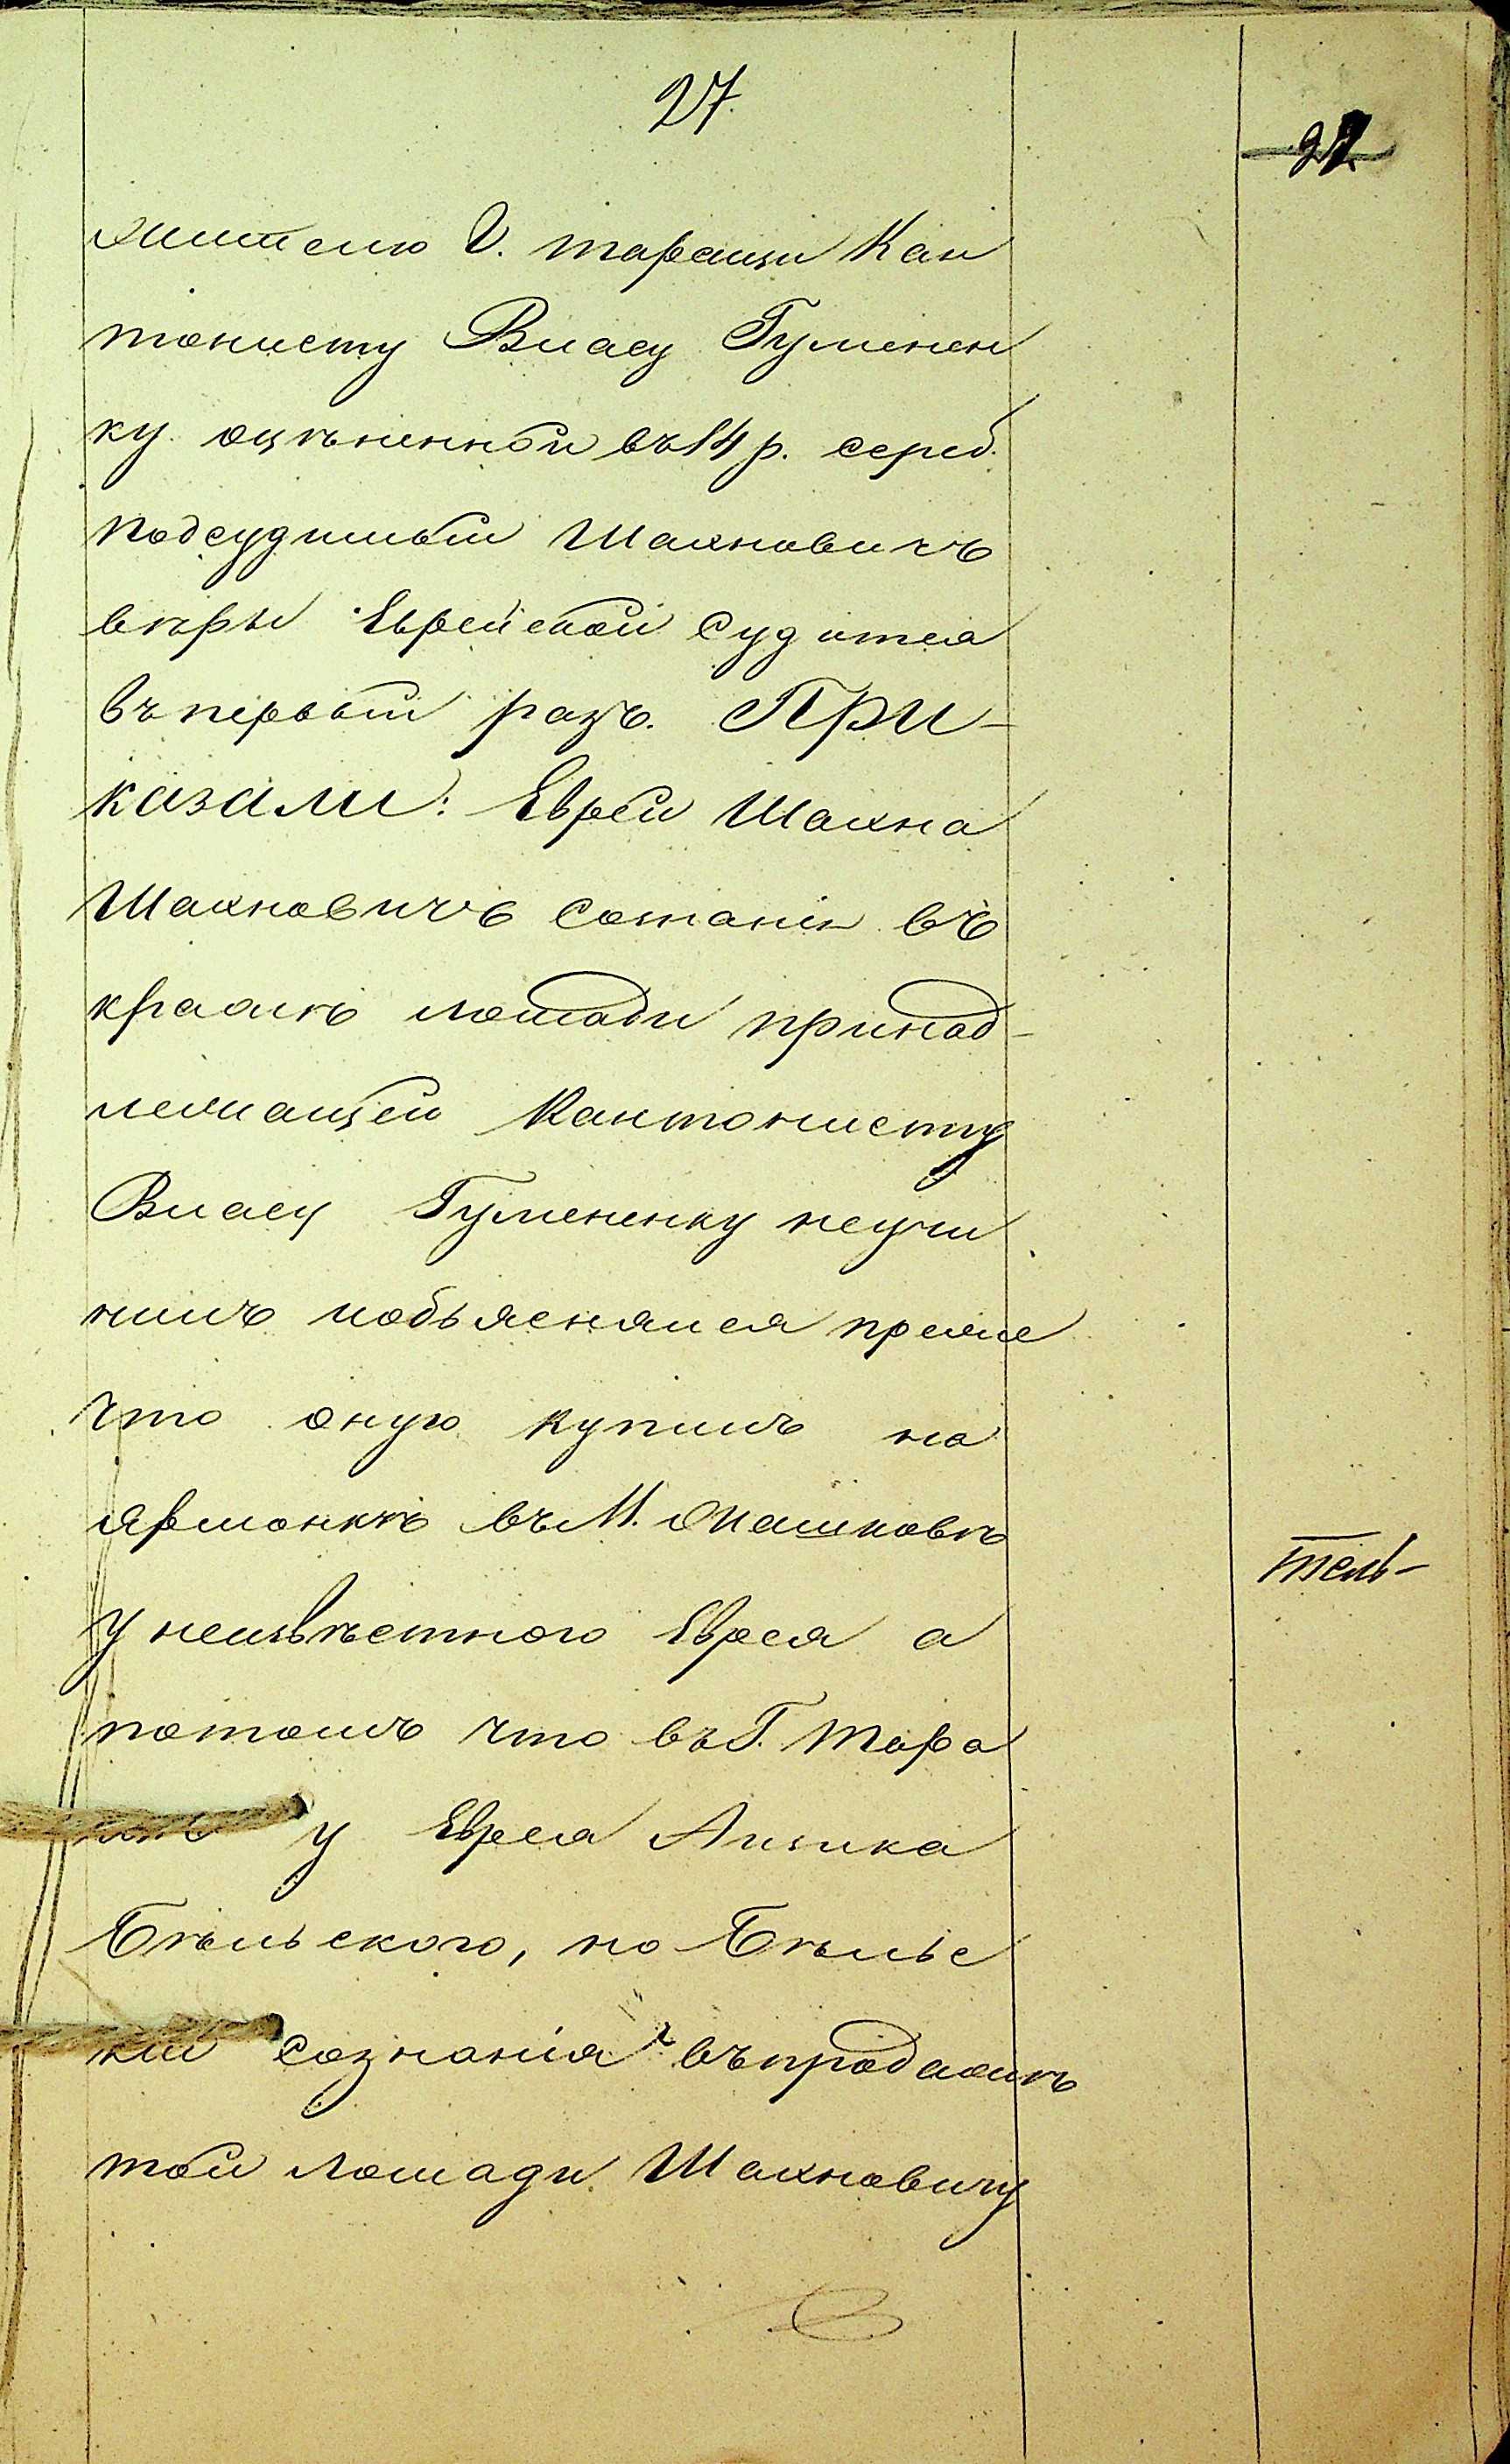 27
жителю Г. таращи Кан
тонисту Власу Гуменен
ку оцѣненной въ 14 р. сереб.
подсудимый Шахновичъ
вѣры Еврейской судится
въ первый разъ. При-
казали: Еврей Шахна
Шахновичъ сознанія въ
кражѣ лошади принад-
лежащей Кантонисту
Власу Гумененку неучи
нилъ иобъяснялся прежде
что оную купилъ на
ярмонкѣ въ М. Жашковѣ
у неизвѣстного Еврея а
потомъ что въ Г. Тара
щѣ у Еврея Аизика
Бѣльского, но Бѣльс
кій сознанія въ продажѣ
той лошади Шахновичу
тель-